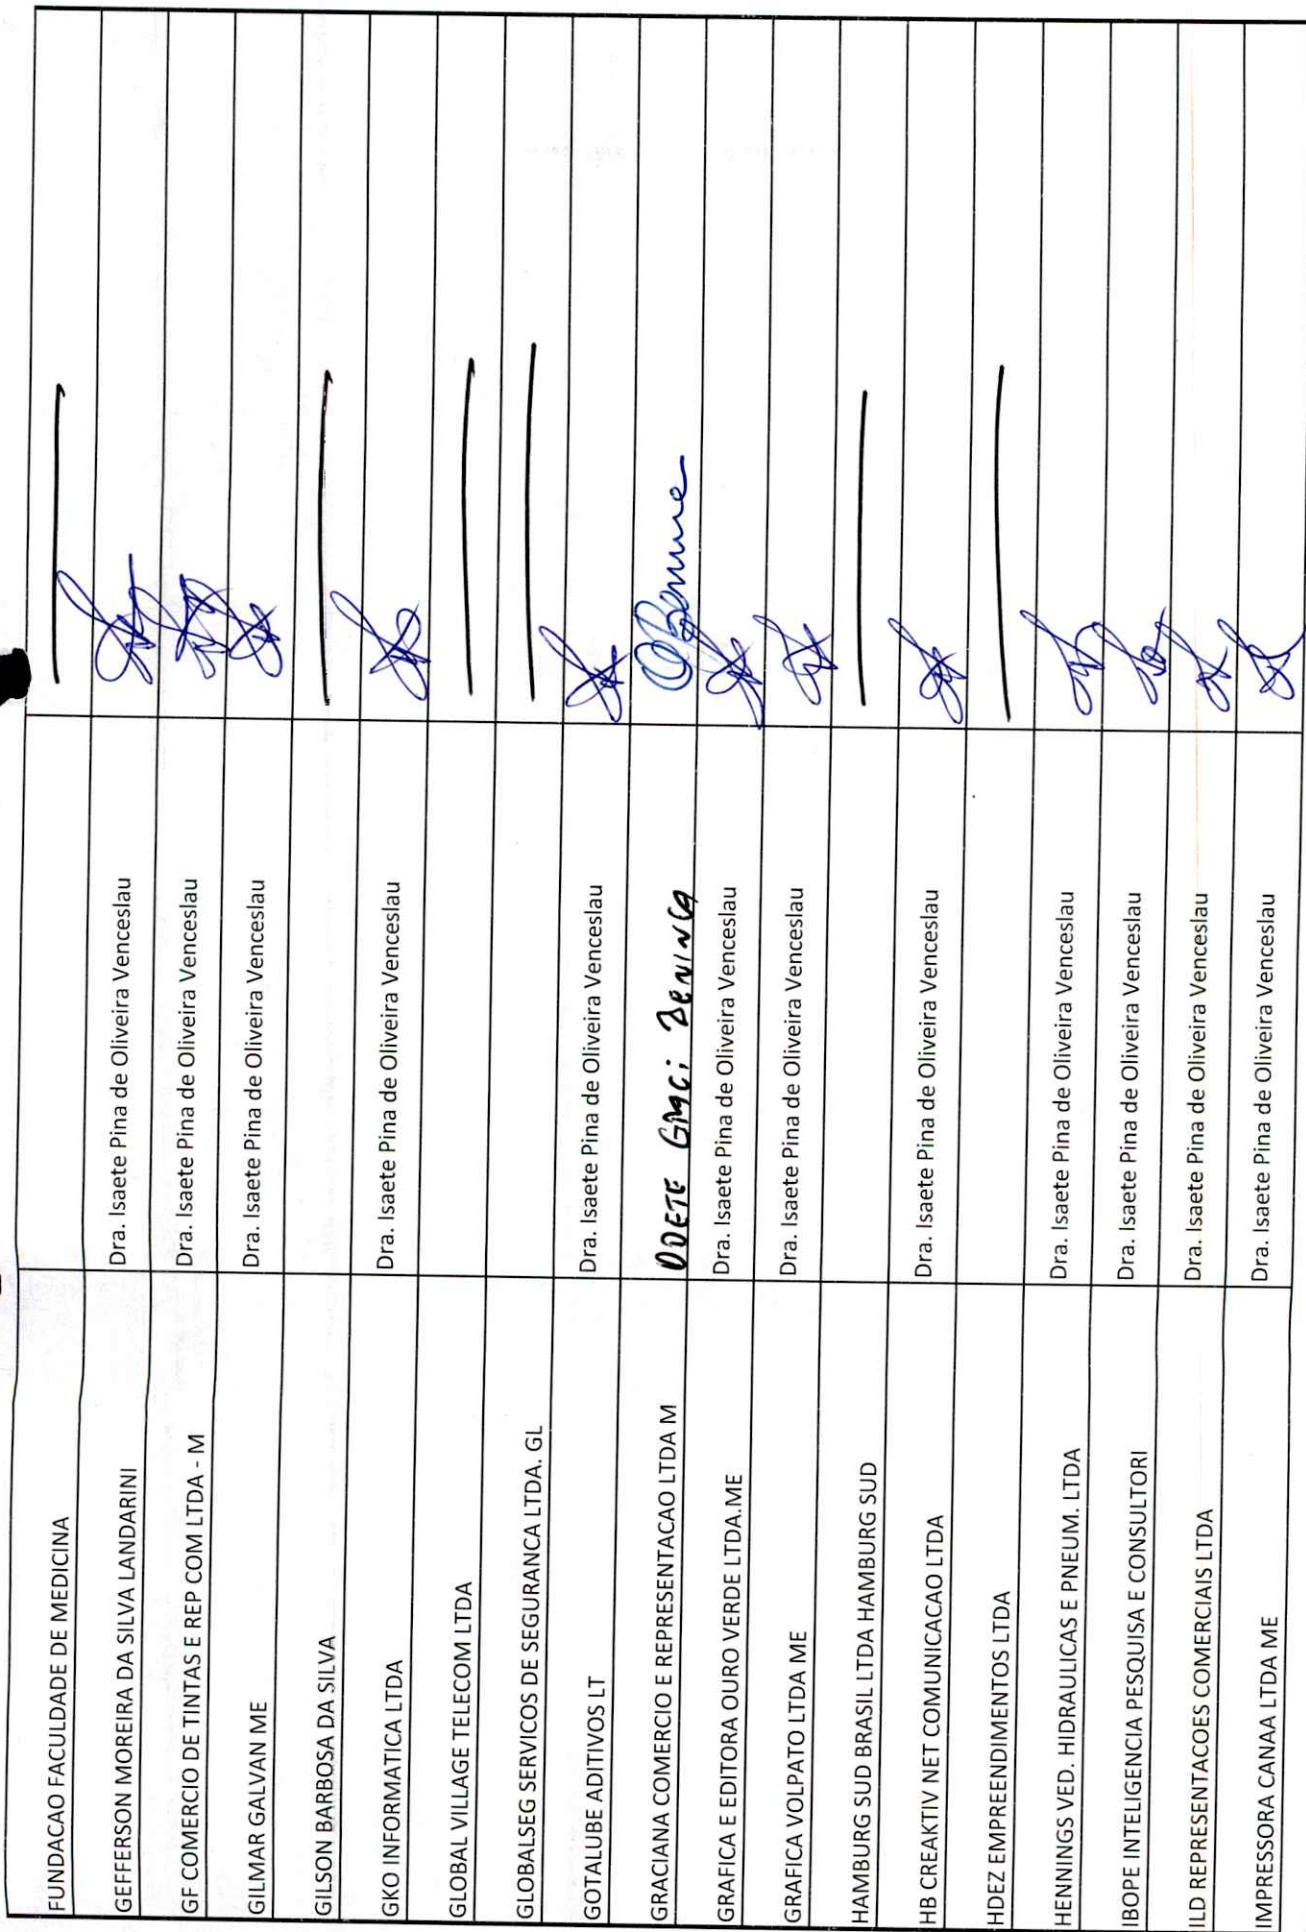 FUNDACAO FACULDADE DE MEDICINA
GEFFERSON MOREIRA DA SILVA LANDARINI Dra. Isaete Pina de Oliveira Venceslau
GF COMERCIO DE TINTAS E REP COM LTDA - M Dra. Isaete Pina de Oliveira Venceslau
GILMAR GALVAN ME Dra. Isaete Pina de Oliveira Venceslau
GILSON BARBOSA DA SILVA
GKO INFORMATICA LTDA Dra. Isaete Pina de Oliveira Venceslau
GLOBAL VILLAGE TELECOM LTDA
GLOBALSEG SERVICOS DE SEGURANCA LTDA. GL
GOTALUBE ADITIVOS LT Dra. Isaete Pina de Oliveira Venceslau
GRACIANA COMERCIO E REPRESENTACAO LTDA M
GRAFICA E EDITORA OURO VERDE LTDA.ME Dra. Isaete Pina de Oliveira Venceslau
GRAFICA VOLPATO LTDA ME Dra. Isaete Pina de Oliveira Venceslau
HAMBURG SUD BRASIL LTDA HAMBURG SUD
HB CREAKTIV NET COMUNICACAO LTDA Dra. Isaete Pina de Oliveira Venceslau
HDEZ EMPREENDIMENTOS LTDA
HENNINGS VED. HIDRAULICAS E PNEUM. LTDA Dra. Isaete Pina de Oliveira Venceslau
IBOPE INTELIGENCIA PESQUISA E CONSULTORI Dra. Isaete Pina de Oliveira Venceslau
ILD REPRESENTACOES COMERCIAIS LTDA Dra. Isaete Pina de Oliveira Venceslau
IMPRESSORA CANAA LTDA ME Dra. Isaete Pina de Oliveira Venceslau